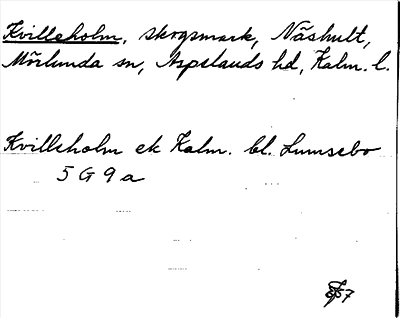 Kvilleholm, skogsmark, Näshult,
Mörlunda sn, Aspelands hd, Kalm. l.
Kvilleholm ek Kalm. bl. Lumsebo
5 G 9 a
57